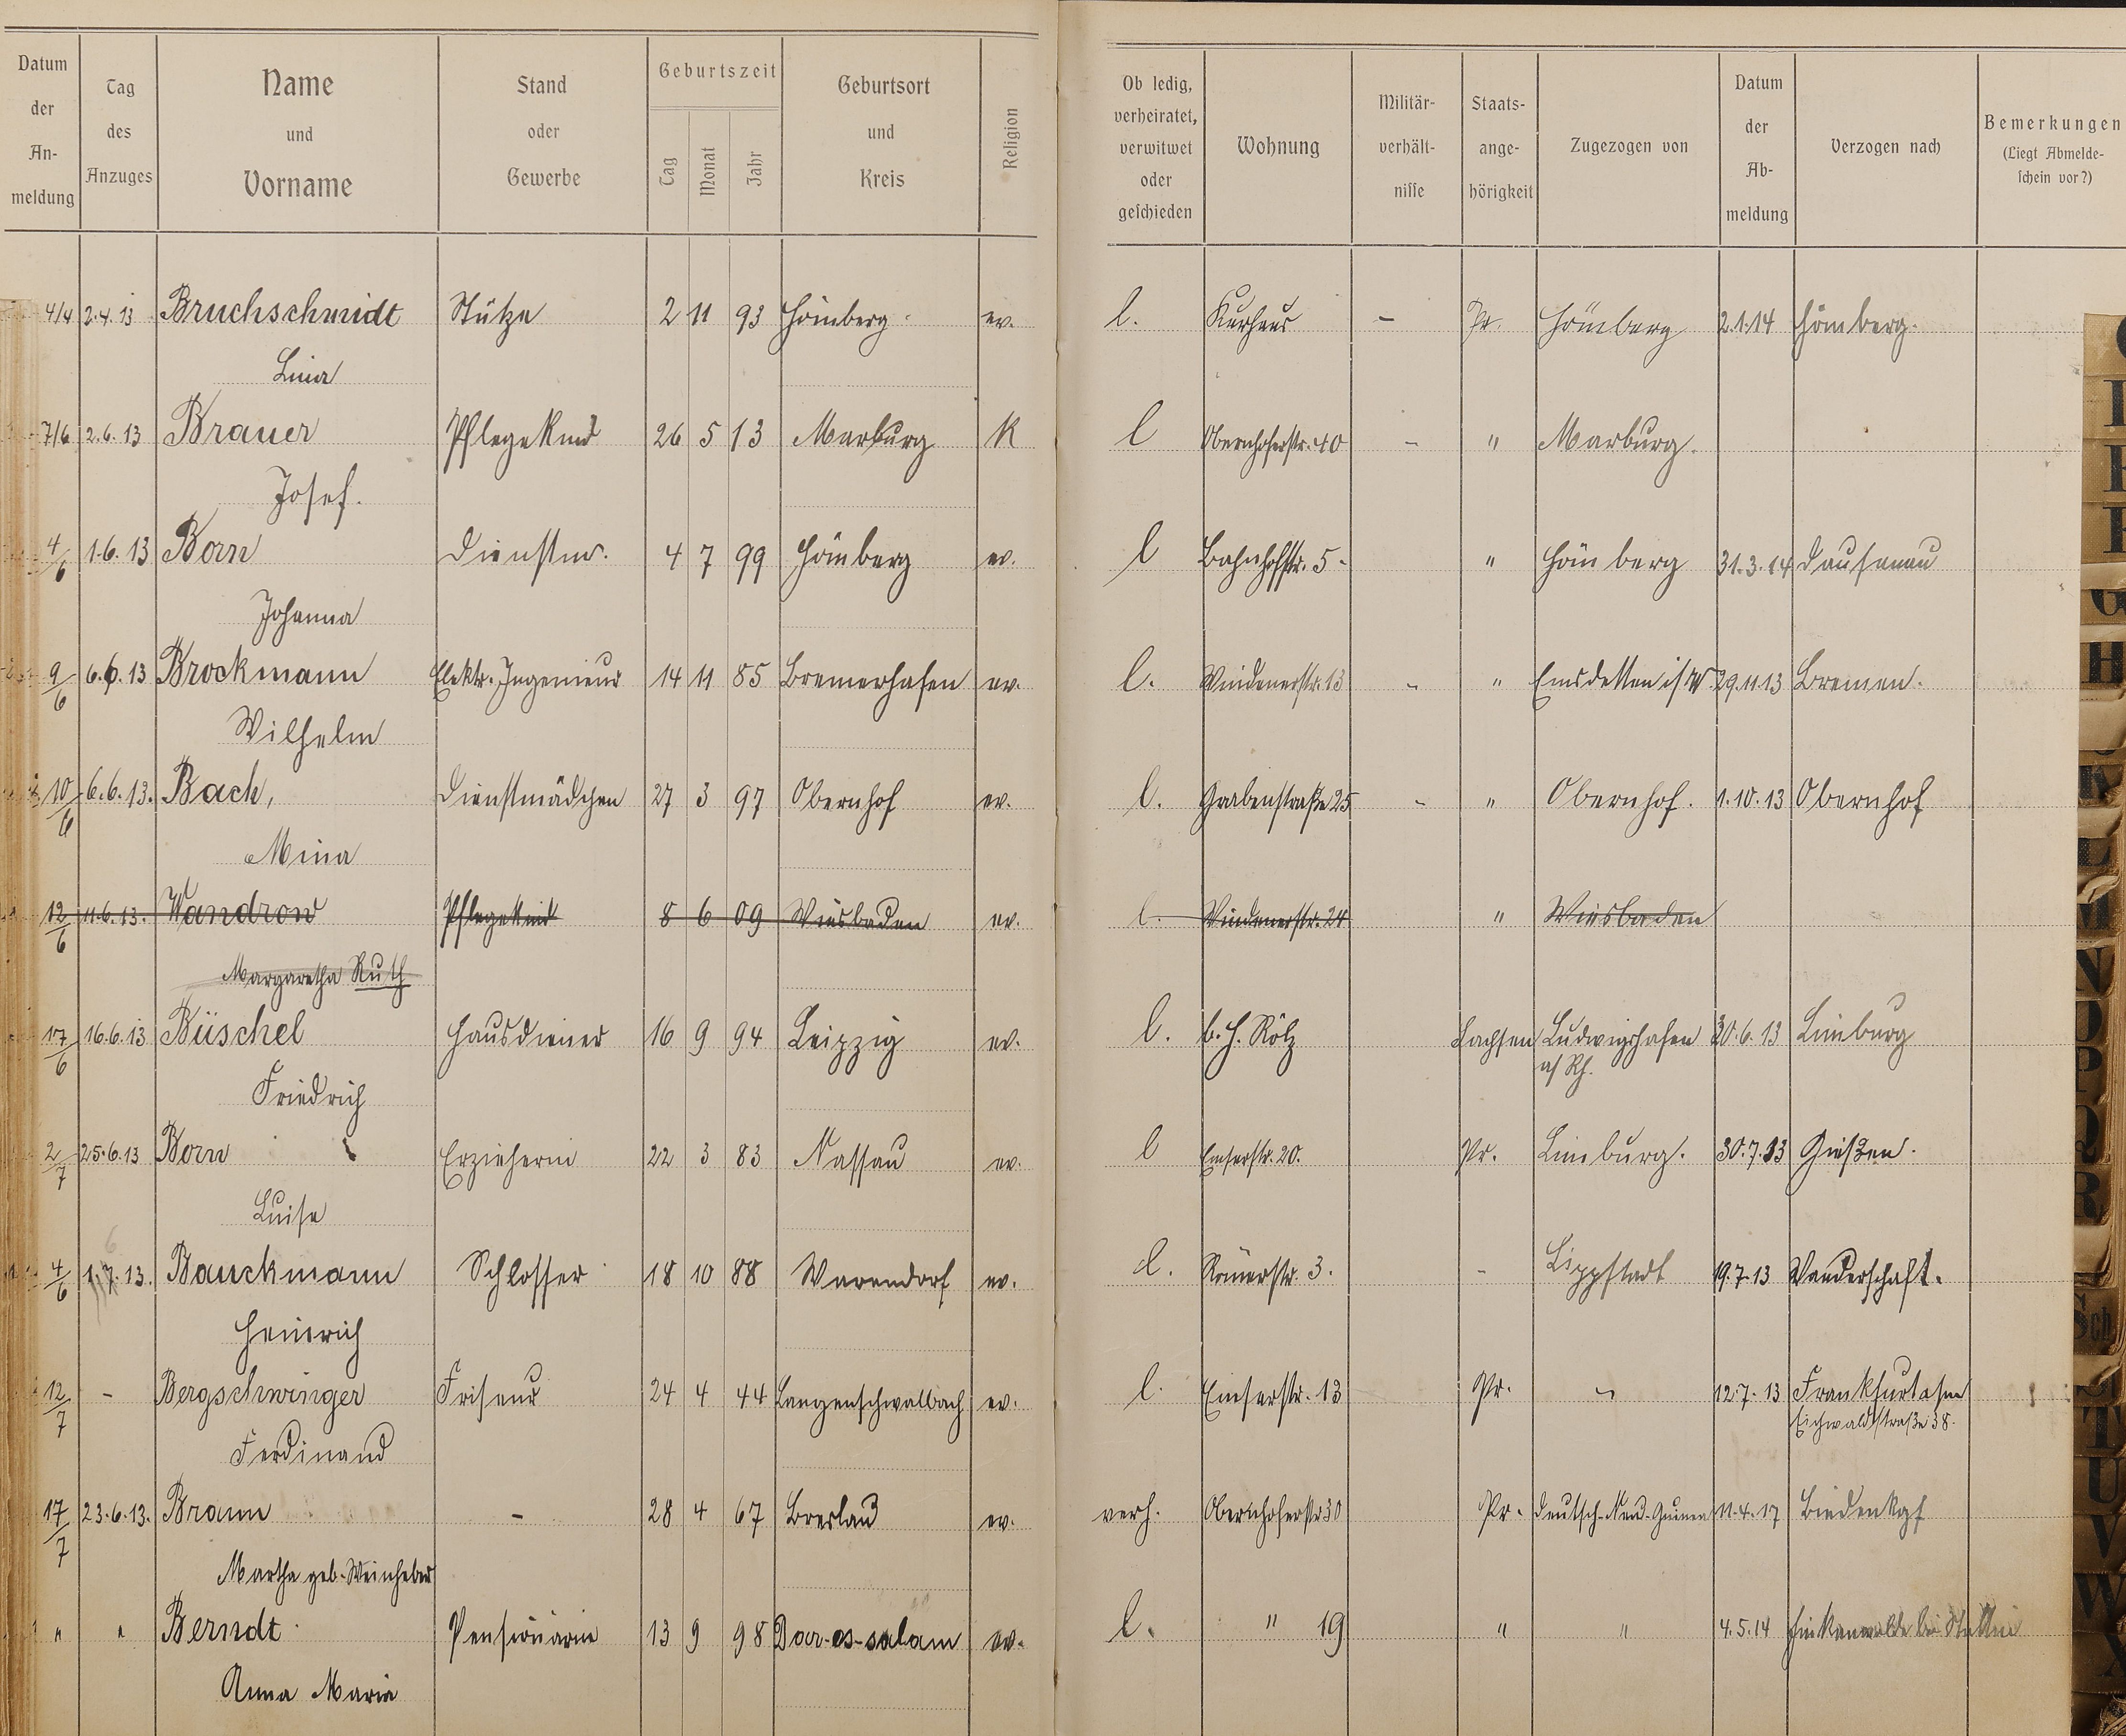 Datum der An-meldung | Tag des Anzuges | Name und Vorname | Stand oder Gewerbe | Geburtszeit Tag Monat Jahr | Geburtsort und Kreis | Religion | Ob ledig, verheiratet, verwitwet oder geschieden | Wohnung | Militär-verhält-nisse | Staats-ange-hörigkeit | Zugezogen von | Datum der Ab-meldung | Verzogen nach | Bemerkungen (Liegt Abmelde-schein vor?)
4/4 2.4.13 Bruchschmidt Stütze 2 11 93 Hömberg ev. l. Kurhaus - Pr. Hömberg 2.1.14 Hömberg.
Lina
7/6 2.6.13 Brauer Pflegekind 26 5 13 Marburg K l Obernhoferstr. 40 - " Marburg.
Josef.
4/6 1.6.13 Born Dienstm. 4 7 99 Hömberg ev. l Bahnhofstr. 5- " Hömberg 31.3.14 Dausenau
Johanna
9/6 6.6.13 Brockmann Elektr. Ingenieur 14 11 85 Bremerhafen ev. l. Windenerstr. 13 - " Emsdetten i/W 29.11.13 Bremen.
Wilhelm
10/6 6.6.13. Bach, Dienstmädchen 27 3 97 Obernhof ev. l. Grabenstraße 25 - " Obernhof. 1.10.13 Obernhof
Mina
12/6 11.6.13. Wandrow Pflegekind 8 6 09 Wiesbaden ev. l. Windenerstr. 24 " Wiesbaden
Margaretha Ruth
17/6 16.6.13 Büschel Hausdiener 16 9 94 Leipzig ev. l. b. H. Rölz Sachsen Ludwigshafen 30.6.13 Limburg
a/Rh.
Friedrich
2/7 25.6.13 Born Erzieherin 22 3 83 Nassau ev. l Emserstr. 20. Pr. Limburg. 30.7.13 Gießen.
Luise
4/6 1.7.13. Bauckmann Schlosser 18 10 88 Warendorf ev. l. Römerstr. 3. - Lippstadt 19.7.13 Wanderschaft.
Heinrich
12/7 - Bergschwinger Friseur 24 4 44 Langenschwalbach ev. l. Emserstr. 13 Pr. - 12.7.13 Frankfurt a/m
Eichwaldstraße 38.
Ferdinand
17/7 23.6.13. Braun - 28 4 67 Breslau ev. verh. Obernhoferstr 30 Pr. Deutsch-Neu-Guinea 11.4.17 Biedenkopf
Martha geb. Weinheber
" " Berndt Pensionärin 13 9 98 Dar-es-salam ev. l. " 19 " " 4.5.14 Finkenwalde bei Stettin
Anna Maria